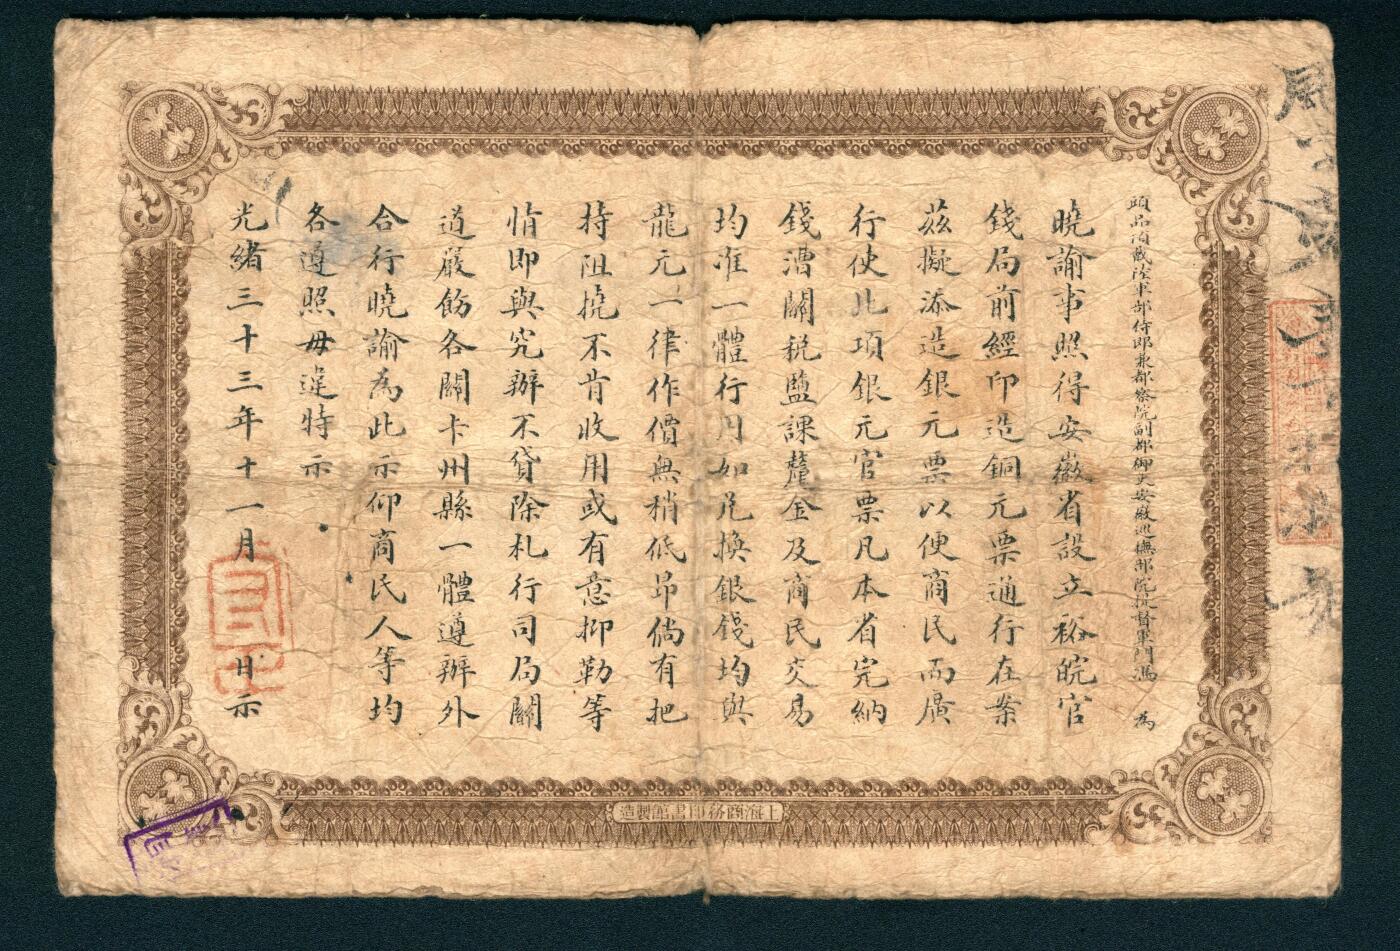 頭品頂戴陸軍部侍郎兼都察院副都御史安徽巡撫部院提督軍門馮 為
曉諭事照得安徽省設立裕皖官
錢局前經印造銅元票通行在案
茲擬添造銀元票以便商民而廣
行使此項銀元官票凡本省完納
錢漕關稅監課釐金及商民交易
均准一體行用如兌換銀錢均與
龍元一律作價無稍低昂倘有把
持阻撓不肯收用或有意抑勒等
情即與究辦不貸除札行司局關
道嚴飭各關卡州縣一體遵辦外
合行曉諭為此示仰商民人等均
各遵照毋違特示
光緒三十三年十一月 廿示
上海商務印書館製造